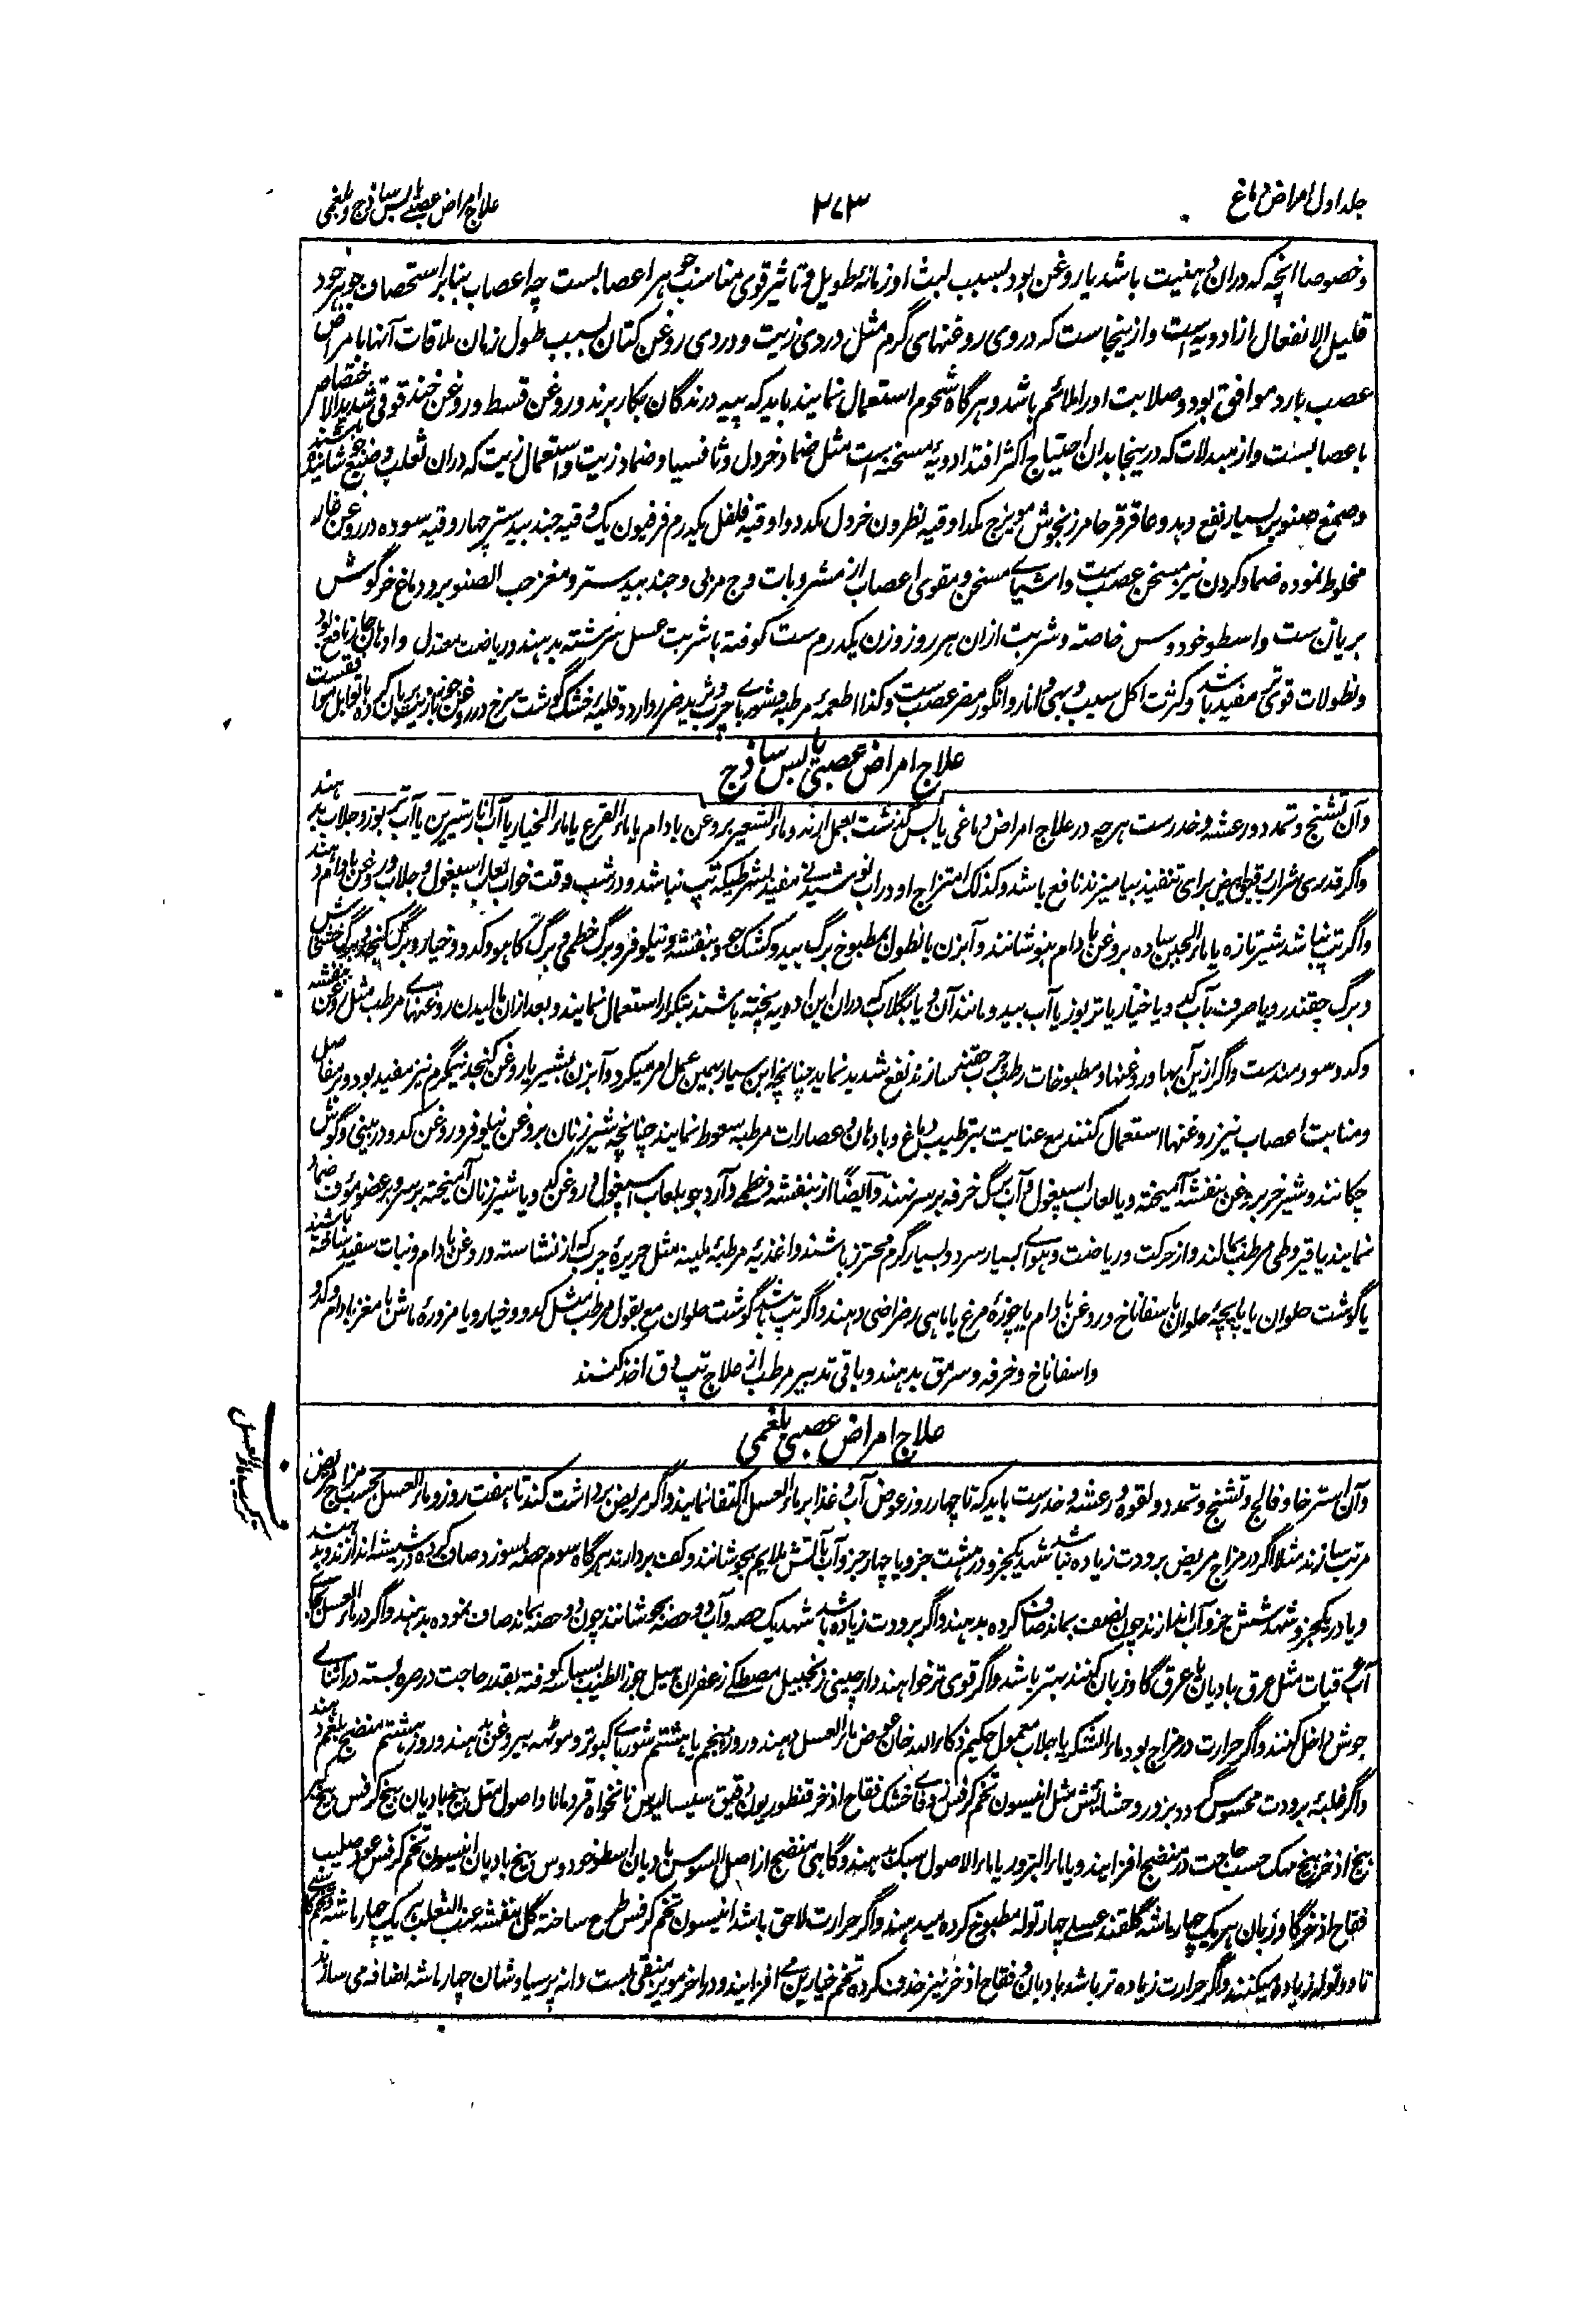 جلد اول امراض دماغ
۲۷۳
علاج امراض عصبی یابس ساذج و بلغمی
وخصوصا انچه که دران دهنیت باشد یا روغن بود بسبب لبث او زمانهٔ طویل و تاثیر قوی مناسب جوهر اعصابست چه اعصاب بنابر استحصاف جوهر خود
قلیل الانفعال از ادویه است وازینجاست که دردی روغنهای گرم مثل دردی زیت و دردی روغن کتان بسبب طول زمان ملاقات آنها بامراض
عصب بارد موافق بود وصلابت اورا ملائم باشد و هرگاه شحوم استعمال نمایند باید که پیه درندگان بکار برند و روغن قسط و روغن خندقوقی شدید الاختصاص
باعصابست واز مبدلات که درینجا بدان احتیاج اکثر افتد ادویهٔ مسخنه است مثل ضماد خردل و ثافسیا وضماد زیت واستعمال زیت که دران ثعلب وضبع جوشانیده باشند
وصمغ صنوبر بسیار نفع دهد وعاقرقرحا مرزنجوش مویزج یکدا وقیه نطرون خردل یکدد وا وقیه فلفل یکدرم فرفیون یک وقیه جندبیدستر چهار وقیه سوده در روغن غار
مخلوط نموده ضماد کردن نیز مسخن عصب ست واشیای مسخن و مقوی اعصاب از مشروبات وج مربی و جندبیدستر و مغز حب الصنوبر و دماغ خرگوش
بریان ست واسطوخودوس خاصة و شربت ازان هر روز وزن یکدرم ست کوفته با شربت عسل سرشته بدهند و ریاضت معتدل وادهان حار نافع بود
ونطولات قوی تر مفید باشد وکثرت اکل سیب و بهی و انار وانگور مضر عصب ست وکذا اطعمهٔ مرطبه وشوربای چرب وثرید ضرر دارد و قلیهٔ خشک گوشت سرخ در روغن جوز یا زیت بریان کرده با توابل موافقست
علاج امراض عصبی یابس ساذج
وآن تشنج و تمدد ورعشه وخدر ست هرچه در علاج امراض دماغی یابس گذشت بعمل آرند وماء الشعیر بروغن بادام یا ماء القرع یا ماء الخیار یا آب انار شیرین یا آب تربوز وجلاب بدهند
واگر قدری شراب رقیق ابیض برای تنفیذ بیامیزند نافع باشد وکذلک امتزاج او در آب نوشیدنی مفید بشرطیکه تپ نباشد و در شب وقت خواب لعاب اسپغول و جلاب و روغن بادام دهند
واگر تپ نباشد شیر تازه یا ماء الجبن ساده بروغن بادام بنوشانند وآبزن یا نطول بمطبوخ برگ بید وکشک جو و بنفشه و نیلوفر و برگ خطمی و برگ کاهو وکدو وخیار و برگ کنجد و برگ خشخاش
وبرگ چقندر ویا صرف بآب کدو ویا خیار یا تربوز یا آب بید ومانند آن ویا بگلاب که دران این ادویه پخته باشند بتکرار استعمال نمایند و بعد ازان مالیدن روغنهای مرطب مثل روغن بنفشه
وکدو سودمند ست واگر ازین آبها وروغنها ومطبوخات رطب مرکب حقنه سازند نفع شدید نماید چنانچه ابن سیار بهمین عمل امر میکرد وآبزن بشیر یا روغن کنجد نیمگرم نیز مفید بود و بر مفاصل
ومنابت اعصاب نیز روغنها استعمال کنند مع عنایت بترطیب دماغ و بادهان و عصارات مرطبه سعوط نمایند چنانچه شیر زنان بروغن نیلوفر و روغن کدو در بینی وگوش
چکانند وشیر خر بروغن بنفشه آمیخته ویا لعاب اسپغول و آب برگ خرفه بر سر نهند وایضًا از بنفشه وخطمی وآرد جو بلعاب اسپغول و روغن کدو ویا شیر زنان آمیخته بر سر و بر عضو مؤف ضماد
نمایند یا قیروطی مرطب مالند واز حرکت و ریاضت وهوای بسیار سرد و بسیار گرم محترز باشند واغذیهٔ مرطبهٔ ملینه مثل حریرهٔ چرب که از نشاسته و روغن بادام ونبات سفید ساخته باشند
یا گوشت حلوان یا پاچهٔ حلوان باسفاناخ و روغن بادام یا چوزهٔ مرغ یا ماهی رضراضی دهند واگر تپ باشد گوشت حلوان مع بقول مرطب مثل کدو و خیار ویا مزورهٔ ماش با مغز بادام وکدو
واسفاناخ وخرفه و سرمق بدهند و باقی تدبیر مرطب از علاج تپ دق اخذ کنند
علاج امراض عصبی بلغمی
وآن استرخا وفالج وتشنج وتمدد ولقوه و رعشه وخدر ست باید که تا چهار روز عوض آب و غذا بر ماء العسل اکتفا نمایند واگر مریض برداشت کند تا هفت روز و ماء العسل بحسب مزاج مریض
مرتب سازند مثلا اگر در مزاج مریض برودت زیاده نباشد شهد یکجزو در هشت جزو یا چهار جزو آب بآتش ملایم بجوشانند وکف بردارند هرگاه سوم حصه بسوزد صاف کرده در شیشه اندازند و بدهند
ویا در یکجزو شهد شش جزو آب اندازند چون نصف بماند صاف کرده بدهند واگر برودت زیاده باشد شهد یک حصه وآب دو حصه بجوشانند چون دو حصه بماند صاف نموده بدهند واگر در ماء العسل بجای
آب عرقیات مثل عرق بادیان یا عرق گاوزبان کنند بهتر باشد واگر قوی تر خواهند دارچینی زنجبیل مصطگی زعفران هیل جوز الطیب بسباسه کوفته بقدر حاجت در صره بسته در اثنای
جوش داخل کنند واگر حرارت در مزاج بود ماء السکر یا جلاب معمول حکیم ذکاء الله خان عوض ماء العسل دهند و روز پنجم یا هشتم شوربای کبوتر و موٹھه بیروغن بدهند و روز هشتم منضج بلغم دهند
واگر غلبهٔ برودت محسوس گردد بزور وحشائش مثل انیسون تخم کرفس زوفای خشک فقاح اذخر قنطوریون دقیق سیسالیوس نانخواه قردمانا واصول مثل بیخ بادیان بیخ کرفس بیخ کبر
بیخ اذخر بیخ مهک حسب حاجت در منضج افزایند ویا ماء البزور یا ماء الاصول سبک بدهند وگاهی منضج از اصل السوس بادیان اسطوخودوس بیخ بادیان انیسون تخم کرفس عود صلیب
فقاح اذخر گاوزبان هر یک چهار ماشه گلقند عسلی چهار توله مطبوخ کرده میدهند واگر حرارت لاحق باشد انیسون تخم کرفس طرح ساخته گل بنفشه عنب الثعلب هر یک چهار ماشه
تا دو توله زیاده میکنند واگر حرارت زیاده تر باشد بادیان و فقاح اذخر نیز حذف کرده تخم خیارین می افزایند و در آخر مویز منقی بست دانه پرسیاوشان چهار ماشه اضافه می سازند
ترکیب ماء العسل